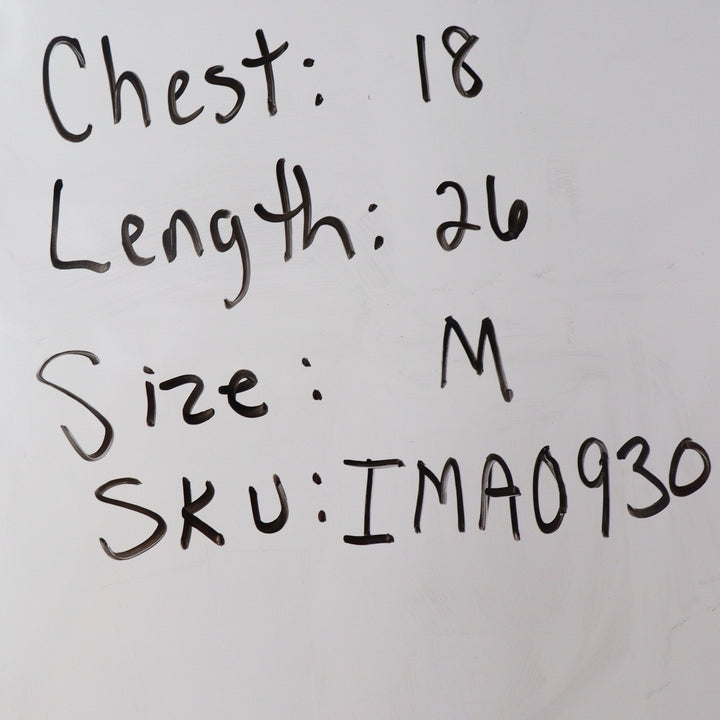 Chest: 18
Length: 26
Size: M
SKU: IMA0930